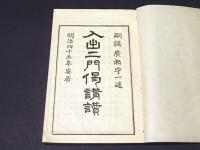 嗣講廣瀬守一述
入出二門偈講讃
明治四十五年安居